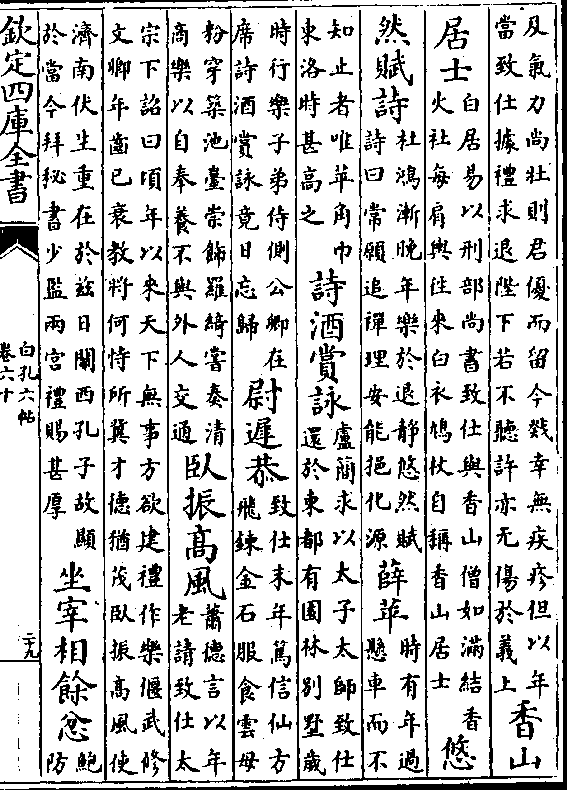 及氣力尚壯則君優而留今戮幸無疾疹但以年
當致仕據禮求退陛下若不聽許亦无傷於義上
香山
居士
白居易以刑部尚書致仕與香山僧如滿結香
火社每肩輿往來白衣鳩杖自稱香山居士
悠
然賦詩
杜鴻漸晚年樂於退静悠然賦
詩曰常願追禪理安能挹化源
薛苹
時有年過
懸車而不
知止者唯苹角巾
東洛時甚高之
詩酒賞詠
盧簡求以太子太師致仕
還於東都有園林别墅歲
時行樂子弟侍側公卿在
席詩酒賞詠竟日忘歸
尉遲恭
致仕末年篤信仙方
飛鍊金石服食雲母
粉穿築池臺崇飾羅綺嘗奏清
商樂以自奉養不與外人交通
臥振高風
蕭德言以年
老請致仕太
宗下詔曰頃年以來天下無事方欲建禮作樂偃武修
文卿年齒已衰教將何恃所冀才德猶茂臥振高風使
濟南伏生重在於兹日關西孔子故顯
於當今拜秘書少監兩宫禮賜甚厚
坐宰相餘忿
鮑
防
欽定四庫全書
白孔六帖
卷六十
二九